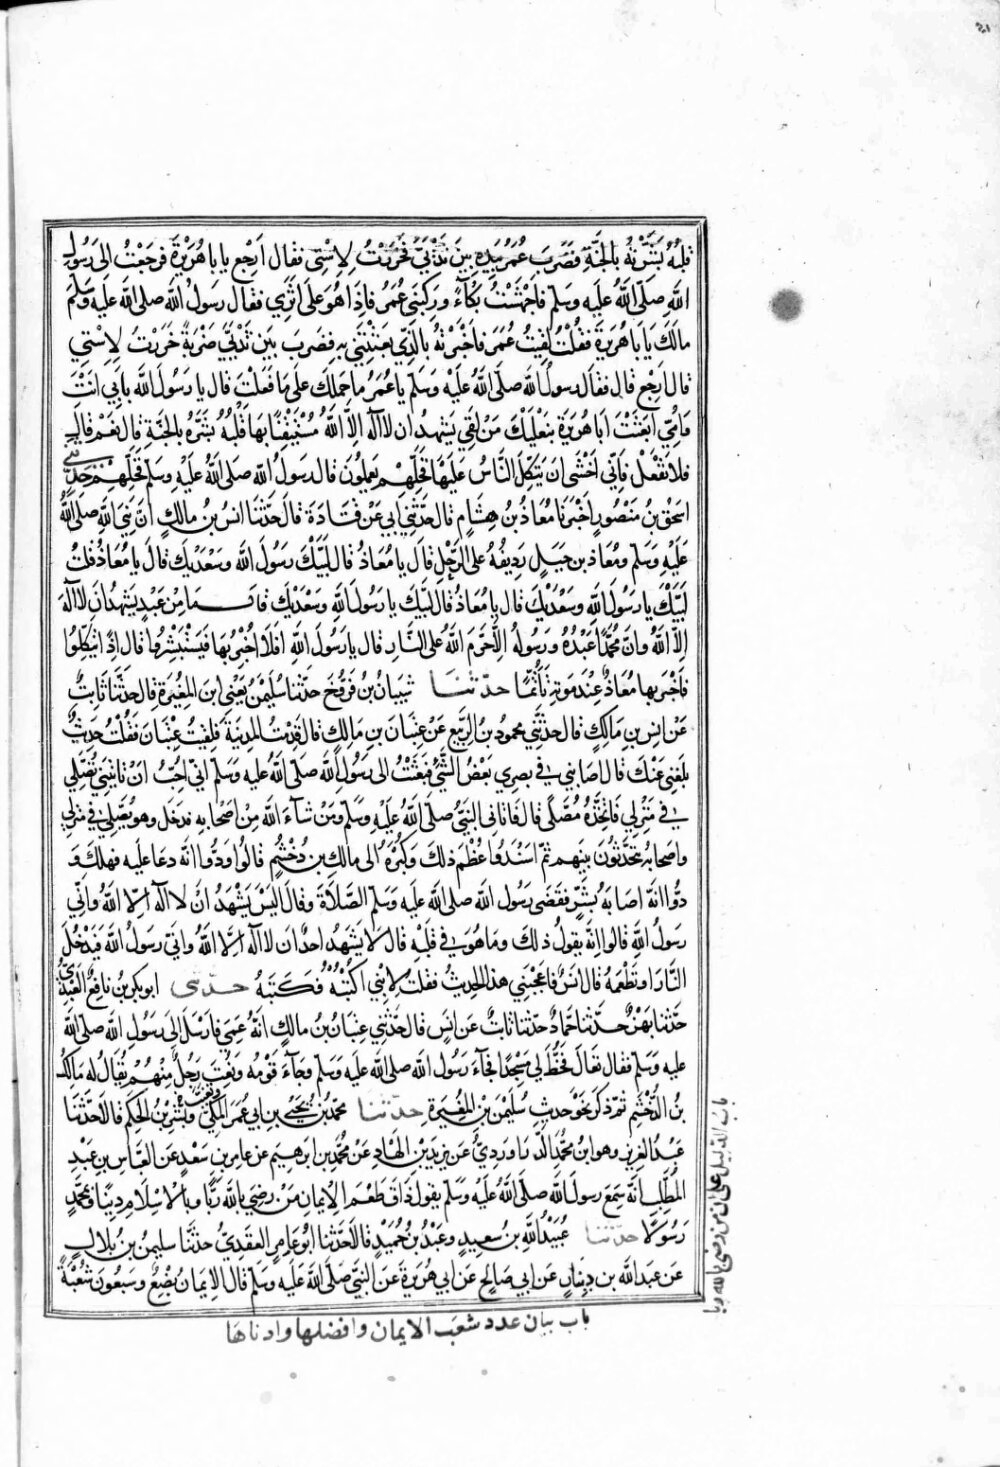 قلبه بشرته بالجنة فضرب عمر بيده بين ثديي فخررت لاستي فقال ارجع يا با هريرة فرجعت الى رسول
الله صلى الله عليه وسلم فاجهشت بكاء وركبني عمر فاذا هو على اثري فقال رسول الله صلى الله عليه وسلم
مالك يا با هريرة فقلت لقيت عمر فاخبرته بالذي بعثتني به فضرب بين ثديي ضربة خررت لاستي
قال ارجع قال فقال رسول الله صلى الله عليه وسلم يا عمر ما حملك على ما فعلت قال يا رسول الله بابي انت
وامي ابعثت ابا هريرة بنعليك من لقي يشهد ان لا اله الا الله مستيقنا بها قلبه بشره بالجنة قال نعم قال
فلا تفعل فاني اخشى ان يتكل الناس عليها فخلهم يعملون قال رسول الله صلى الله عليه وسلم فخلهم حدثني
اسحق بن منصور اخبرنا معاذ بن هشام قال حدثني ابي عن قتادة قال حدثنا انس بن مالك ان نبي الله صلى الله
عليه وسلم ومعاذ بن جبل رديفه على الرحل قال يا معاذ قال لبيك رسول الله وسعديك قال يا معاذ قلت
لبيك يا رسول الله وسعديك قال يا معاذ قال لبيك يا رسول الله وسعديك قال ما من عبد يشهد ان لا اله
الا الله وان محمدا عبده ورسوله الا حرم الله على النار قال يا رسول الله افلا اخبر بها فيستبشروا قال اذا يتكلوا
فاخبر بها معاذ عند موته تأثما حدثنا شيبان بن فروخ حدثنا سليمن يعني ابن المغيرة قال حدثنا ثابت
عن انس بن مالك قال حدثني محمود بن الربيع عن عتبان بن مالك قال قدمت المدينة فلقيت عتبان فقلت حديث
بلغني عنك قال اصابني في بصري بعض الشيء فبعثت الى رسول الله صلى الله عليه وسلم اني احب ان تاتيني تصلي
في منزلي فاتخذه مصلى قال فاتاني النبي صلى الله عليه وسلم ومن شاء الله من اصحابه فدخل وهو يصلي في منزلي
واصحابه يتحدثون بينهم ثم اسندوا عظم ذلك وكبره الى مالك بن دخشم قالوا ودوا انه دعا عليه فهلك و
دوا انه اصابه بشر فقضى رسول الله صلى الله عليه وسلم الصلاة وقال اليس يشهد ان لا اله الا الله واني
رسول الله قالوا انه يقول ذلك وما هو في قلبه قال لا يشهد احد ان لا اله الا الله واني رسول الله فيدخل
النار او تطعمه قال انس فاعجبني هذا الحديث فقلت لابني اكتبه فكتبه حدثني ابو بكر بن نافع العبدي
حدثنا بهز حدثنا حماد حدثنا ثابت عن انس قال حدثني عتبان بن مالك انه عمي فارسل الى رسول الله صلى الله
عليه وسلم فقال تعال فخط لي مسجدا فجاء رسول الله صلى الله عليه وسلم وجاء قومه ونعت رجل منهم يقال له مالك
بن الدخشم ثم ذكر نحو حديث سليمن بن المغيرة حدثنا محمد بن يحيى بن ابي عمر المكي وبشر بن الحكم قالا حدثنا
عبد العزيز وهو ابن محمد الدراوردي عن يزيد بن الهاد عن محمد بن ابرهيم عن عامر بن سعد عن العباس بن عبد
المطلب انه سمع رسول الله صلى الله عليه وسلم يقول ذاق طعم الايمان من رضي بالله ربا وبالاسلام دينا وبمحمد
رسولا حدثنا عبيد الله بن سعيد وعبد بن حميد قالا حدثنا ابو عامر العقدي حدثنا سليمن بن بلال
عن عبد الله بن دينار عن ابي صالح عن ابي هريرة عن النبي صلى الله عليه وسلم قال الايمان بضع وسبعون شعبة
باب الدليل على ان من رضي بالله ربا
باب بيان عدد شعب الايمان وافضلها وادناها